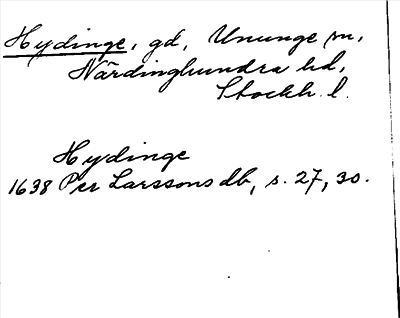 Hydinge, gd, Ununge sn,
Närdinghundra hd,
Stockh. l.
Hydinge
1638 Per Larssons db, s. 27, 30.